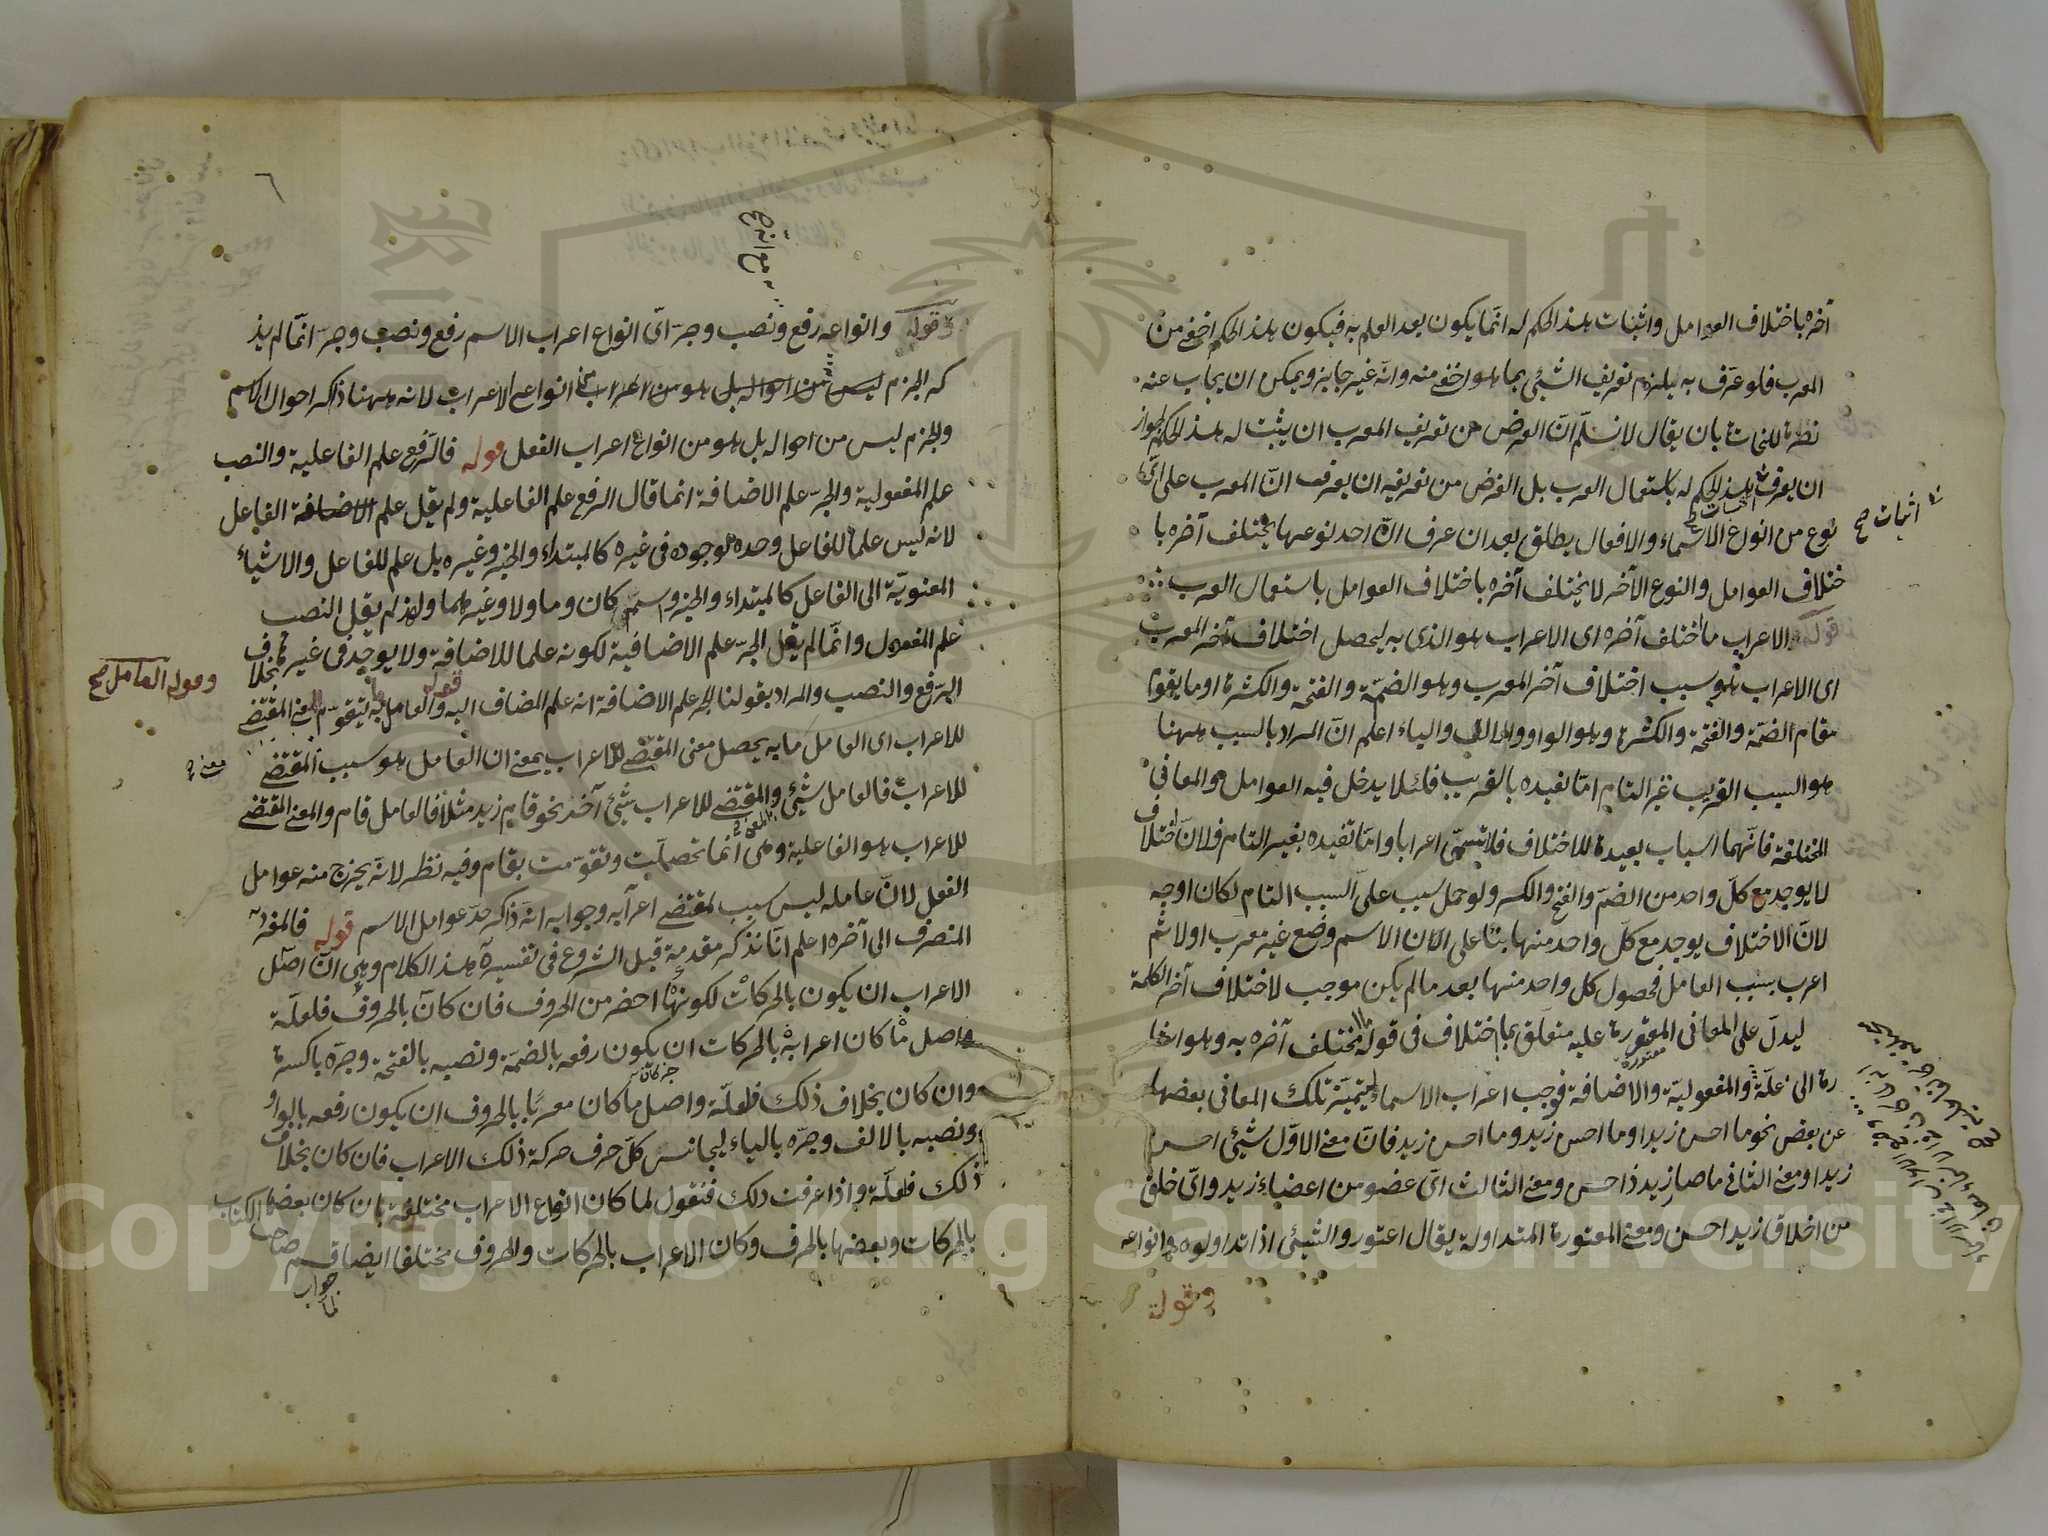 آخره باختلاف العوامل واثبات هذا الحكم له انما يكون بعد العلم به فيكون هذا الحكم اخفى من
المعرب فلو عرّف به يلزم تعريف الشئ بما هو اخفى منه وانه غير جايز ويمكن ان يجاب عنه
نصرة للنحاة بان يقال لا نسلّم انّ الغرض من تعريف المعرب ان يثبت له هذا الحكم لجواز
ان يعرف هذا الحكم له باستعمال العرب بل الغرض من تعريفه ان يعرف انّ المعرب على اىّ
نوع من انواع الاسماء والافعال يطلق بعد ان عرف انّ احد نوعيها يختلف آخره با
ختلاف العوامل والنوع الآخر لا يختلف آخره باختلاف العوامل باستعمال العرب
قوله الاعراب ما اختلف آخره اى الاعراب هو الذى به ليحصل اختلاف آخر المعرب
اى الاعراب هو سبب اختلاف آخر المعرب وهو الضمّة والفتحة والكسرة او ما يقوم
مقام الضمّة والفتحة والكسرة وهو الواو والالف والياء اعلم انّ المراد بالسبب ههنا
هو السبب القريب غير التام امّا تقيده بالقريب فلئلا يدخل فيه العوامل والمعانى
المختلفة فانّهما اسباب بعيدة للاختلاف فلا تسمّى اعرابا وامّا تقيده بغير التام فلانّ اختلاف
لا يوجد مع كلّ واحد من الضمّ والفتح والكسر ولو حمل سبب على السبب التام لكان اوجه
لانّ الاختلاف يوجد مع كلّ واحد منها بناء على انّ الاسم وضع غير معرب اولا ثم
اعرب بسبب العامل فحصول كل واحد منها بعد ما لم يكن موجب لاختلاف آخر الكلمة
ليدلّ على المعانى المعتورة عليه متعلّق بما اختلاف فى قوله يختلف آخره به وهو اشا
رة الى علّة والمفعوليّة والاضافة فوجب اعراب الاسماء ليتميّز تلك المعانى بعضها
عن بعض نحو ما احسن زيدا وما احسن زيد وما احسن زيد فانّ معنى الاوّل شيئ احسن
زيدا ومعنى الثانى ما صار زيد ذا حسن ومعنى الثالث اىّ عضو من اعضاء زيد واىّ خلق
من اخلاق زيد احسن ومعنى المعتورة المتداولة يقال اعتور والشيئ اذا تداولوه وانواعه
وقوله
اثبات صح
وقوله وانواعه رفع ونصب وجرّ اىّ انواع اعراب الاسم رفع ونصب وجرّ انّما لم يذ
كر الجزم ليس من احواله بل هو من اعراب من انواع الاعراب لانه ههنا ذاكر احوال الاسم
والجزم ليس من احواله بل هو من انواع اعراب الفعل قوله فالرّفع علم الفاعلية والنصب
علم المفعولية والجرّ علم الاضافة انما قال الرفع علم الفاعلية ولم يقل علم الاضافة الفاعل
لانه ليس علما للفاعل وحده لوجوده فى غيره كالمبتداء والخبر وغيره بل علم للفاعل والاشياء
المعنويّة الى الفاعل كالمبتداء والخبر واسم كان وما ولا وغيرهما ولهذا لم يقل النصب
علم المفعول وانّما لم يقل الجرّ علم الاضافية لكونه علما للاضافة ولا يوجد فى غيره بخلاف
الرّفع والنصب والمراد بقولنا الجر علم الاضافة انه علم المضاف اليه قوله والعامل ما به يتقوّم المعنى المقتضى
للاعراب اى العامل ما به يحصل معنى المقتضى للاعراب بمعنى ان العامل هو سبب المقتضى
للاعراب فالعامل شيئ والمقتضى للاعراب شيئ آخر نحو قام زيد مثلا فالعامل قام والمعنى المقتضى
للاعراب هو الفاعلية وهى انما تحصلت وتقوّمت بقام وفيه نظر لانّه يخرج منه عوامل
الفعل لانّ عامله ليس سبب لمقتضى اعرابه وجوابه انه ذاكر حدّ عوامل الاسم قوله فالمفرد
المنصرف الى آخره اعلم انّا نذكر مقدمة قبل الشروع فى تفسير هذا الكلام وهى انّ اصل
الاعراب ان يكون بالحركات لكونها اخصر من الحروف فان كان بالحروف فلعلّة
واصل ما كان اعرابه بالحركات ان يكون رفعه بالضمّة ونصبه بالفتحة وجرّه بالكسرة
وان كان بخلاف ذلك فلعلّة واصل ما كان معربا بالحروف ان يكون رفعه بالواو
ونصبه بالالف وجرّه بالياء ليجانس كلّ حرف حركة ذلك الاعراب فان كان بخلاف
ذلك فلعلّة واذا عرفت ذلك فنقول لما كان انواع الاعراب مختلفة بان كان بعضها
بالحركات وبعضها بالحرف وكان الاعراب بالحركات والحروف مختلفا ايضا قسم صاحب الكتاب
جواب لما
وقوله العامل صح
معنى